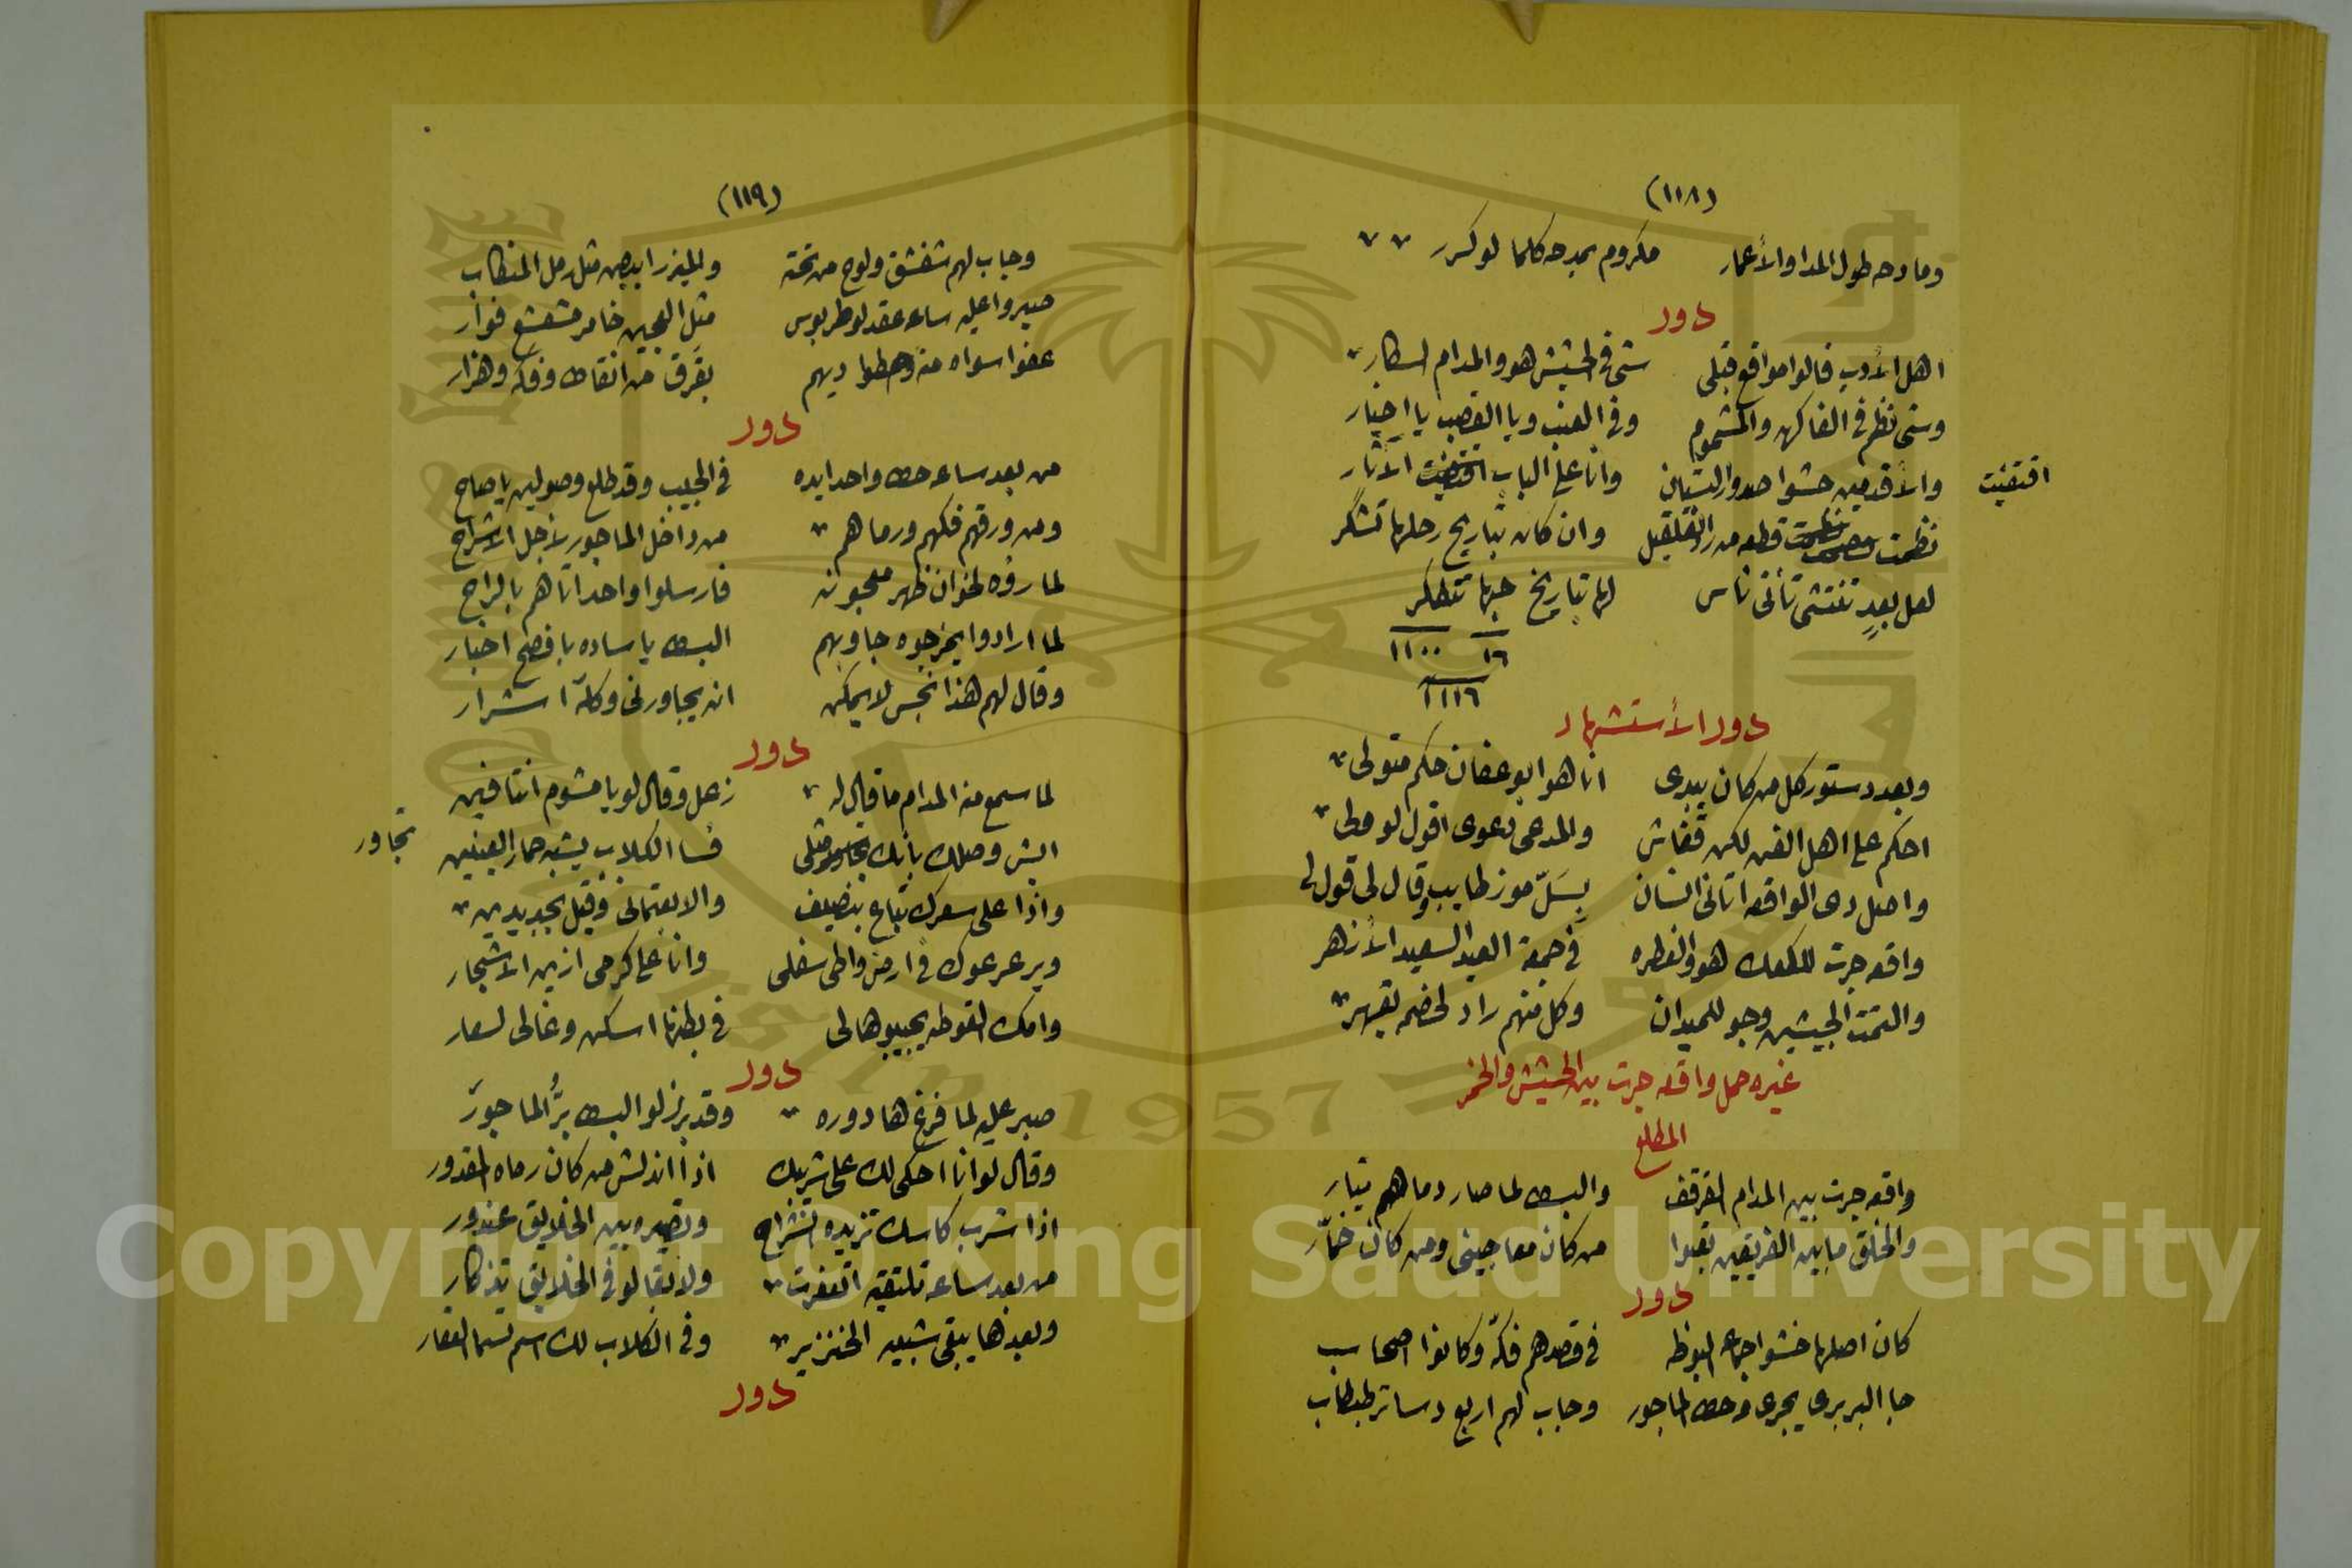 (١١٨)
وما دحه طول المدا والأعمار مكروم بمدحه كلما لو كرر
دور
اهل الأدب قالوا مواقع قبلى شى فى الحشيش هو والمدام اسكار
وشى نظم فى الفاكهه والمشموم وفى العنب ويا القصب يا اخبار
والأقدمين خشوا البستان وانا على الباب الآثار
اقتفيت
نظمت قطعه من وان كان بتاريخ رحلها تشكر
لعل بعدٍ تأتى ناس لها بتاريخ حبها تتعطر
١٦ ١١٠٠
١١١٦
دور الأستشهاد
وبعد دستور كل من كان يبدى انا هو ابو عفان حكم متولى
احكم على اهل الفن لكن قفاش والمدعى دعوى اقول لو
واصل دى الواقعه اتانى انسان وقال لى قول لى
واقعه جرت للكعك هو والفطره فى جمعة العيد السعيد الأزهر
والتمت الجيشين وجو للميدان وكل منهم راد لخصمه يقهر
غيره حمل واقعه جرت بين الحشيش والخمر
المطلع
واقعه جرت بين المدام القرقف والبسط لما صار دماهم تيار
والخلق مابين الفريقين بقوا من كان معاجينى ومن كان خمّار
دور
كان اصلها خشوا جماعه البوظه فى قصدهم فكّه وكانوا اصحاب
جا البربرى يجرى وحط الماجور وجاب لهم اربع دساتر
(١١٩)
وجاب لهم شفشق ولوح من تحته والميزر ابيض مثل رمل
صبروا عليه ساعه عقد لو طربوس مثل العجين خامر مشعشع فوار
عفوا سواه منه وحطوا ديهم بقرق من وفكه وهزار
دور
من بعد ساعه حط واحد ايده فى الجيب وقد طلع وصولين يا صاح
ومن ورقهم فكهم ورماهم من داخل الماجور لأجل الاشراح
لما رؤه لخوان ظهر معجونه فارسلوا واحد اتاهم بالراح
لما ارادوا يمزجوه جاوبهم البسط يا ساده بافصح اخبار
وقال لهم هذا نجس لا يمكن ان يجاورنى وكله اشرار
دور
لما سمع منه المدام ما قال له زعل وقال لو يا مشوم انتا فين
ايش وصلك بانك مثلى فسا الكلاب يشبه حمار العينين
تجاور
واذا على سعرك تباع بنصيف والا بعتمانى وقيل بجديدين
ويزعرعوك فى ارض واطى سفلى وانا على كرمى ازين الاشجار
وامك القوطه يجيبوها لى فى بطنها اسكن وغالى لسعار
دور
صبر عليه لما فرغ ها دوره وقد برز لو البسط برُّ الماجور
وقال لو انا احكى لك على شربك اذا اندلش من كان رماه المقدور
اذا شرب كاسك تزيده انشراح وتصيره بين الخلايق عندور
من بعد ساعه تلتقيه اتعفرت ولا بقا لو فى الخلايق تذكار
وبعدها يبقى شبيه الخنزير وفى الكلاب لك اسم تسما العقار
دور
Copyright © King Saud University
1957